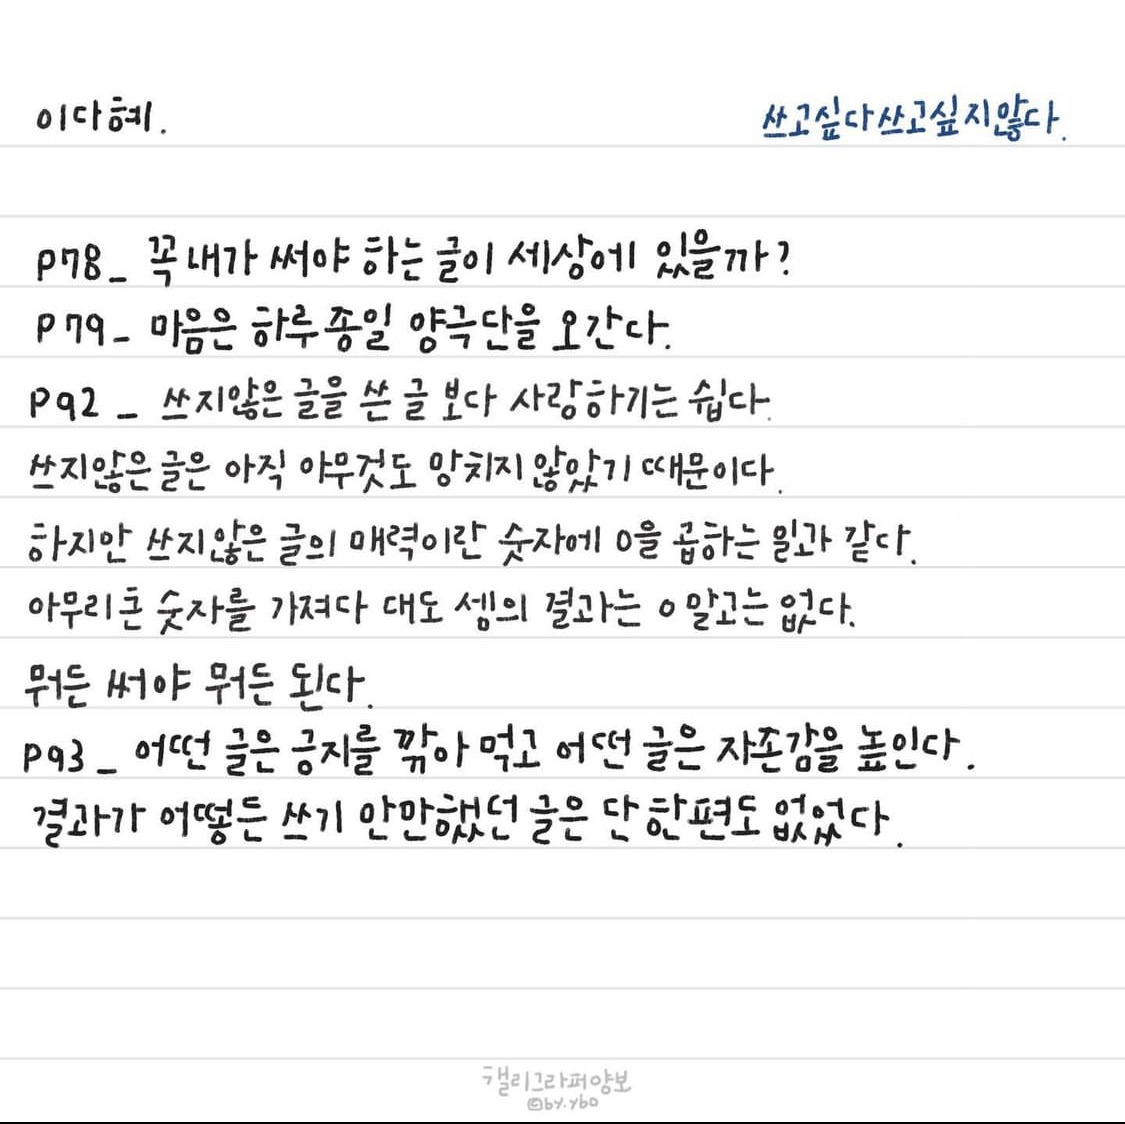 이다혜.
쓰고싶다쓰고싶지않다.
P78_ 꼭 내가 써야 하는 글이 세상에 있을까?
P79_ 마음은 하루종일 양극단을 오간다.
P92_ 쓰지않은 글을 쓴 글 보다 사랑하기는 쉽다.
쓰지않은 글은 아직 아무것도 망치지 않았기 때문이다.
하지만 쓰지않은 글의 매력이란 숫자에 0을 곱하는 일과 같다.
아무리 큰 숫자를 가져다 대도 셈의 결과는 0 말고는 없다.
뭐든 써야 뭐든 된다.
P93_ 어떤 글은 긍지를 깎아 먹고 어떤 글은 자존감을 높인다.
결과가 어떻든 쓰기 안만했던 글은 단 한편도 없었다.
캘리그라퍼양보
©by.ybo